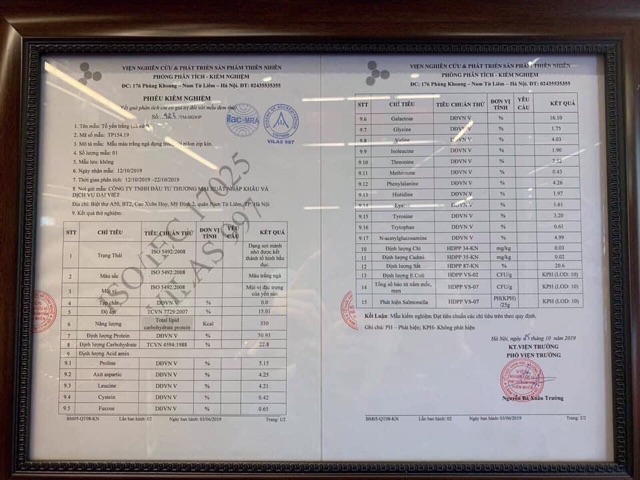 VIỆN NGHIÊN CỨU & PHÁT TRIỂN SẢN PHẨM THIÊN NHIÊN
PHÒNG PHÂN TÍCH - KIỂM NGHIỆM
ĐC: 176 Phùng Khoang – Nam Từ Liêm – Hà Nội. ĐT: 02435535355
PHIẾU KIỂM NGHIỆM
Kết quả phân tích chỉ có giá trị đối với mẫu đem thử
ilac-MRA
VILAS 997
ISO/IEC 17025
VILAS 997
1. Tên mẫu: Tổ yến trắng
2. Mã số mẫu: TP154.19
3. Mô tả mẫu: Mẫu màu trắng ngà đựng trong túi nilon zip kín.
4. Số lượng mẫu: 01
5. Mẫu lưu: không
6. Ngày nhận mẫu: 12/10/2019
7. Thời gian phân tích: 12/10/2019 -22/10/2019
8. Nơi gửi mẫu: CÔNG TY TNHH ĐẦU TƯ THƯƠNG MẠI XUẤT NHẬP KHẨU VÀ
DỊCH VỤ ĐẠI VIỆT
Địa chỉ: Biệt thự A50, BT2, Cao Xuân Huy, Mỹ Đình 2, quận Nam Từ Liêm, TP. Hà Nội
9. Kết quả thử nghiệm:
STT CHỈ TIÊU TIÊU CHUẨN THỬ ĐƠN VỊ TÍNH YÊU CẦU KẾT QUẢ
1 Trạng Thái ISO 5492:2008 Dạng sợi mảnh nhỏ được kết thành tổ hình bầu dục.
2 Màu sắc ISO 5492:2008 Màu trắng ngà
3 Mùi vị ISO 5492:2008 Mùi vị đặc trưng của yến sào
4 Tạp chất DĐVN V % 0.0
5 Độ ẩm TCVN 7729:2007 % 15.01
6 Năng lượng Total lipid carbohydrate protein Kcal 330
7 Định lượng Protein DĐVN V %
8 Định lượng Carbohydrate TCVN 4594:1988 % 22.8
9 Định lượng Acid amin
9.1 Proline DĐVN V % 5.15
9.2 Axit aspartic DĐVN V % 4.25
9.3 Leucine DĐVN V % 4.21
9.4 Cystein DĐVN V % 0.42
9.5 Fucose DĐVN V % 0.65
BM05-QT08-KN Lần ban hành: 02 Ngày ban hành: 03/06/2019 Trang: 1/2
VIỆN NGHIÊN CỨU & PHÁT TRIỂN SẢN PHẨM THIÊN NHIÊN
PHÒNG PHÂN TÍCH - KIỂM NGHIỆM
ĐC: 176 Phùng Khoang – Nam Từ Liêm – Hà Nội. ĐT: 02435535355
STT CHỈ TIÊU TIÊU CHUẨN THỬ ĐƠN VỊ TÍNH YÊU CẦU KẾT QUẢ
9.6 Galactose DĐVN V % 16.10
9.7 Glysine DĐVN V % 1.75
9.8 Valine DĐVN V % 4.03
9.9 Isoleucine DĐVN V % 1.90
9.10 Threonine DĐVN V %
9.11 Methionine DĐVN V % 0.43
9.12 Phenylalanine DĐVN V % 4.26
9.13 Histidine DĐVN V % 1.97
9.14 Lysine DĐVN V %
9.15 Tyrosine DĐVN V % 3.20
9.16 Trytophan DĐVN V % 0.61
9.17 N-acetylglucosamine DĐVN V % 4.99
10 Định lượng Chì HDPP 34-KN mg/kg 0.03
11 Định lượng Cadmi HDPP 35-KN mg/kg 0.02
12 Định lượng Sắt HDPP 87-KN % 20.6
13 Định lượng E.Coli HDPP VS-02 CFU/g KPH (LOD: 10)
14 Tổng số bào tử nấm mốc, men HDPP VS-07 CFU/g KPH (LOD: 10)
15 Phát hiện Salmonella HDPP VS-07 PH(KPH) /25g KPH (LOD: 10)
Kết Luận: Mẫu kiểm nghiệm Đạt tiêu chuẩn các chỉ tiêu trên theo quy định.
Ghi chú: PH – Phát hiện; KPH- Không phát hiện
Hà Nội, ngày 25 tháng 10 năm 2019
KT.VIỆN TRƯỞNG
PHÓ VIỆN TRƯỞNG
Nguyễn Bá Xuân Trường
BM05-QT08-KN Lần ban hành: 02 Ngày ban hành: 03/06/2019 Trang: 2/2